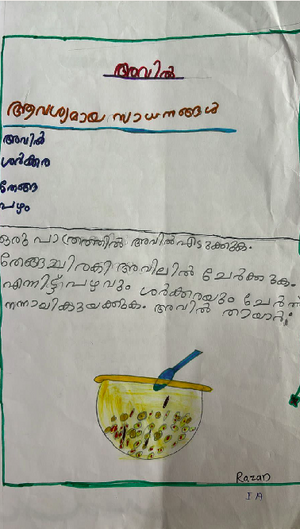 അവിൽ
ആവശ്യമായ സാധനങ്ങൾ
അവിൽ
ശർക്കര
തേങ്ങ
പഴം
ഒരു പാത്രത്തിൽ അവിൽ എടുക്കുക.
തേങ്ങചിരകി അവിലിൽ ചേർക്കുക.
എന്നിട്ട് പഴവും ശർക്കരയും ചേർത്
നന്നാലികുയക്കുക. അവിൽ തിയാറ്;
Razan
I A